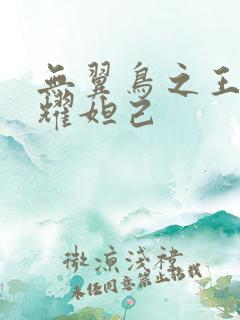 無翼鳥之王
耀妲己
微涼淺襟
未经同意禁止转载